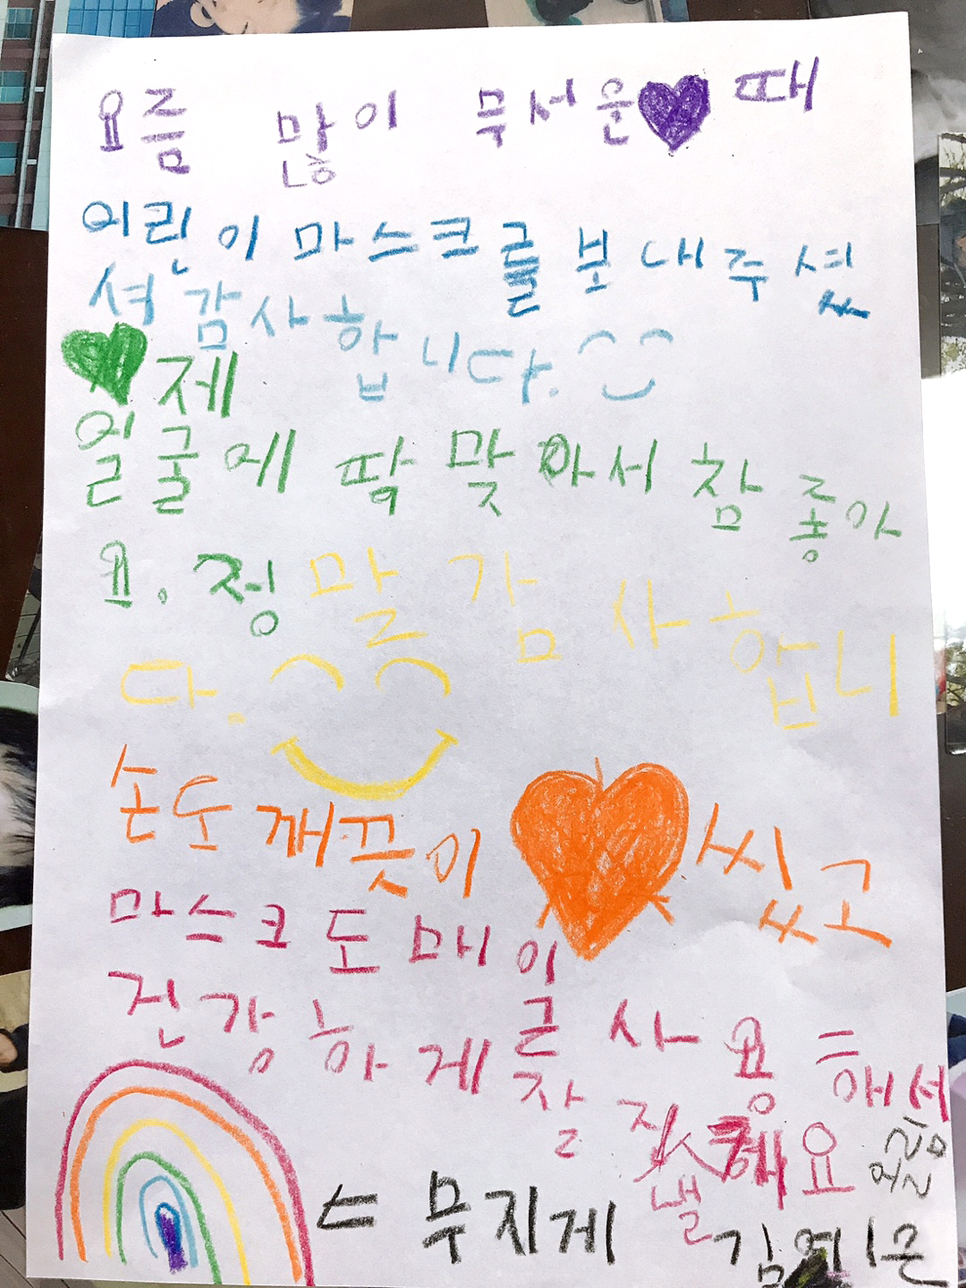 요즘 많이 무서운 때
어린이 마스크를 보내주셨
셔 감사합니다.
제
얼굴에 딱 맞아서 참 좋아
요. 정말 감사합니
다.
손도 깨끗이 씼고
마스크도 매일
건강하게 글 사용해서
잘 지낼게요
무지게